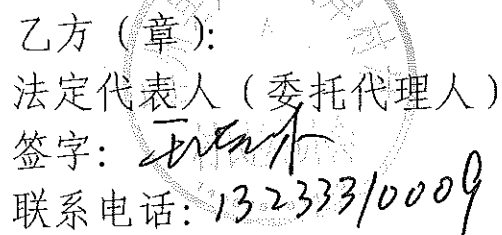 乙方（章）：
法定代表人（委托代理人）
签字：
联系电话：13233310009